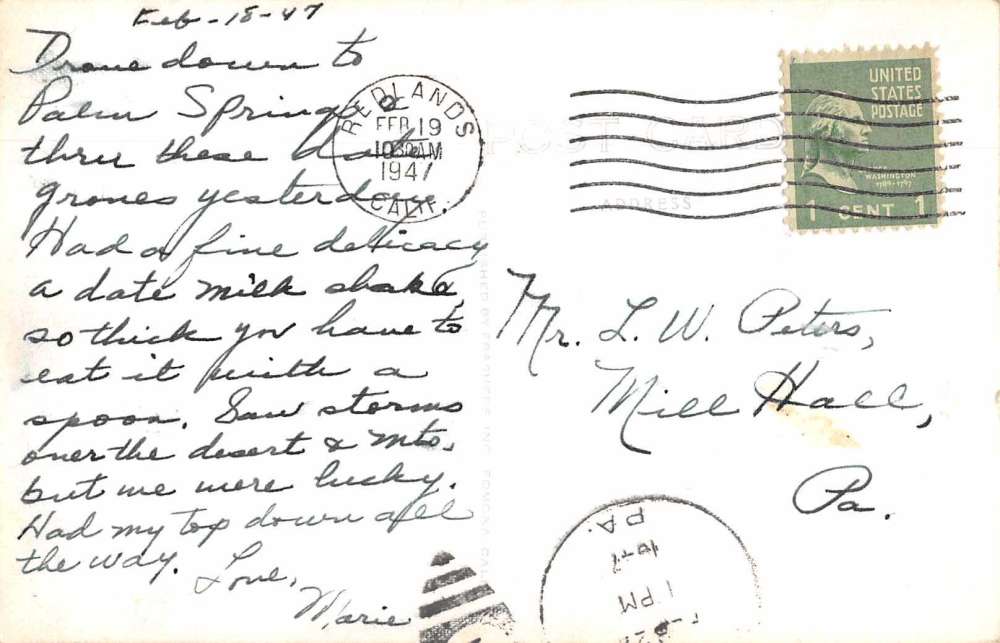 Feb-18-47
Drove down to
Palm Springs
thru these date
groves yesterday.
Had a fine delicacy
a date milk shake,
so thick you have to
eat it with a
spoon. Saw storms
over the desert & Mts.
but we were lucky.
Had my top down all
the way. Love,
Marie
REDLANDS
FEB 19
10 AM
1947
CALIF.
POST CARD
ADDRESS
UNITED
STATES
POSTAGE
WASHINGTON
1789-1797
1 CENT 1
Mr. L. W. Peters,
Mill Hall,
Pa.
PA.
1947
1 PM